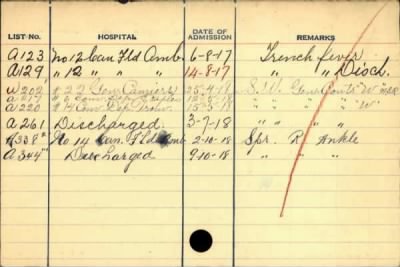 LIST NO. HOSPITAL DATE OF ADMISSION REMARKS
A123 No 12 Can Fld Amb 6-8-17 Trench fever
A129 " 12 " " " 14-8-17 " " Disch.
W202 # 22 Gen Camiers 25-4-18 S.W.
A220 15-5-18 " " "W"
A261 Discharged 3-7-18 " " "
A338 No 14 Can. Fld Amb 2-10-18 Spr. R Ankle
A344 Discharged 9-10-18 " " "